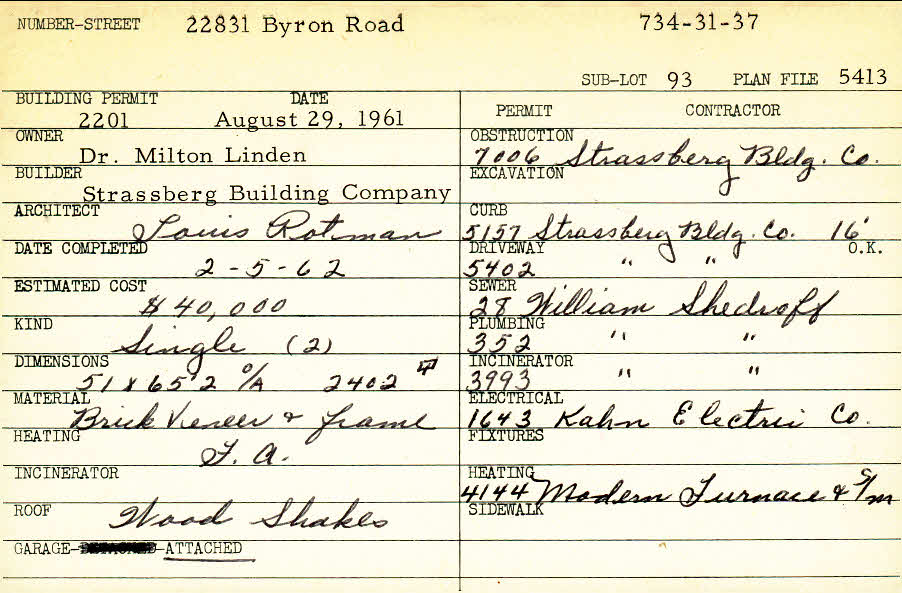 NUMBER-STREET 22831 Byron Road 734-31-37
SUB-LOT 93 PLAN FILE 5413
BUILDING PERMIT DATE
2201 August 29, 1961
OWNER
Dr. Milton Linden
BUILDER
Strassberg Building Company
ARCHITECT
Louis Rotman
DATE COMPLETED
2-5-62
ESTIMATED COST
$40,000
KIND
Single (2)
DIMENSIONS
51 x 65'2 O/A 2402
MATERIAL
Brick Veneer & frame
HEATING
F. A.
INCINERATOR
ROOF Wood Shakes
GARAGE- -ATTACHED
PERMIT CONTRACTOR
OBSTRUCTION
7006 Strassberg Bldg. Co.
EXCAVATION
CURB
5157 Strassberg Bldg. Co. 16'
DRIVEWAY O.K.
5402 " "
SEWER
28 William Shedroff
PLUMBING
352 " "
INCINERATOR
3993 " "
ELECTRICAL
1643 Kahn Electric Co.
FIXTURES
HEATING
4144 Modern Furnace & S/m
SIDEWALK